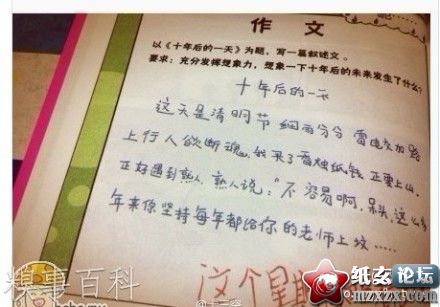 作 文
以《十年后的一天》为题，写一篇叙述文。
要求：充分发挥想象力，想象一下十年后的未来发生了什么？
十年后的一天
这天是清明节 细雨分分 雷电交加 路
上行人欲断魂，我买了香烛纸钱 正要上山，
正好遇到熟人，熟人说：“不容易啊，呆头，这么多
年来你坚持每年都给你的老师上坟……
这个星
糗事百科
纸女论坛
www.mzxzx1.com